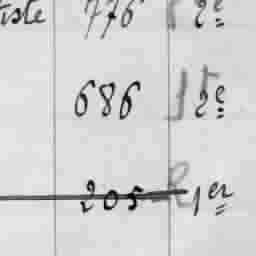 iste 776 2e
686 2e
205 1er